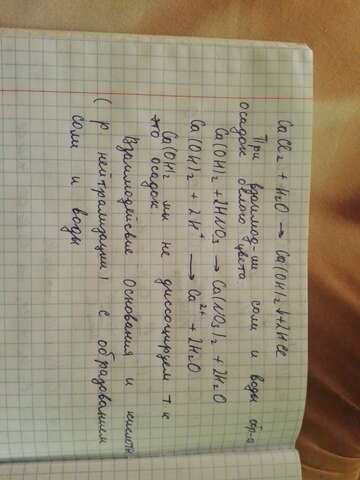 CaCl₂ + H₂O → Ca(OH)₂↓ + 2HCl
При взаимод-ии соли и воды обр-ся
осадок белого цвета
Ca(OH)₂ + 2HNO₃ → Ca(NO₃)₂ + 2H₂O
Ca(OH)₂ + 2H⁺ → Ca²⁺ + 2H₂O
Ca(OH)₂ мы не диссоциируем т.к
это осадок.
Взаимодействие основания и кислоты
(р нейтрализации) с образованием
соли и воды